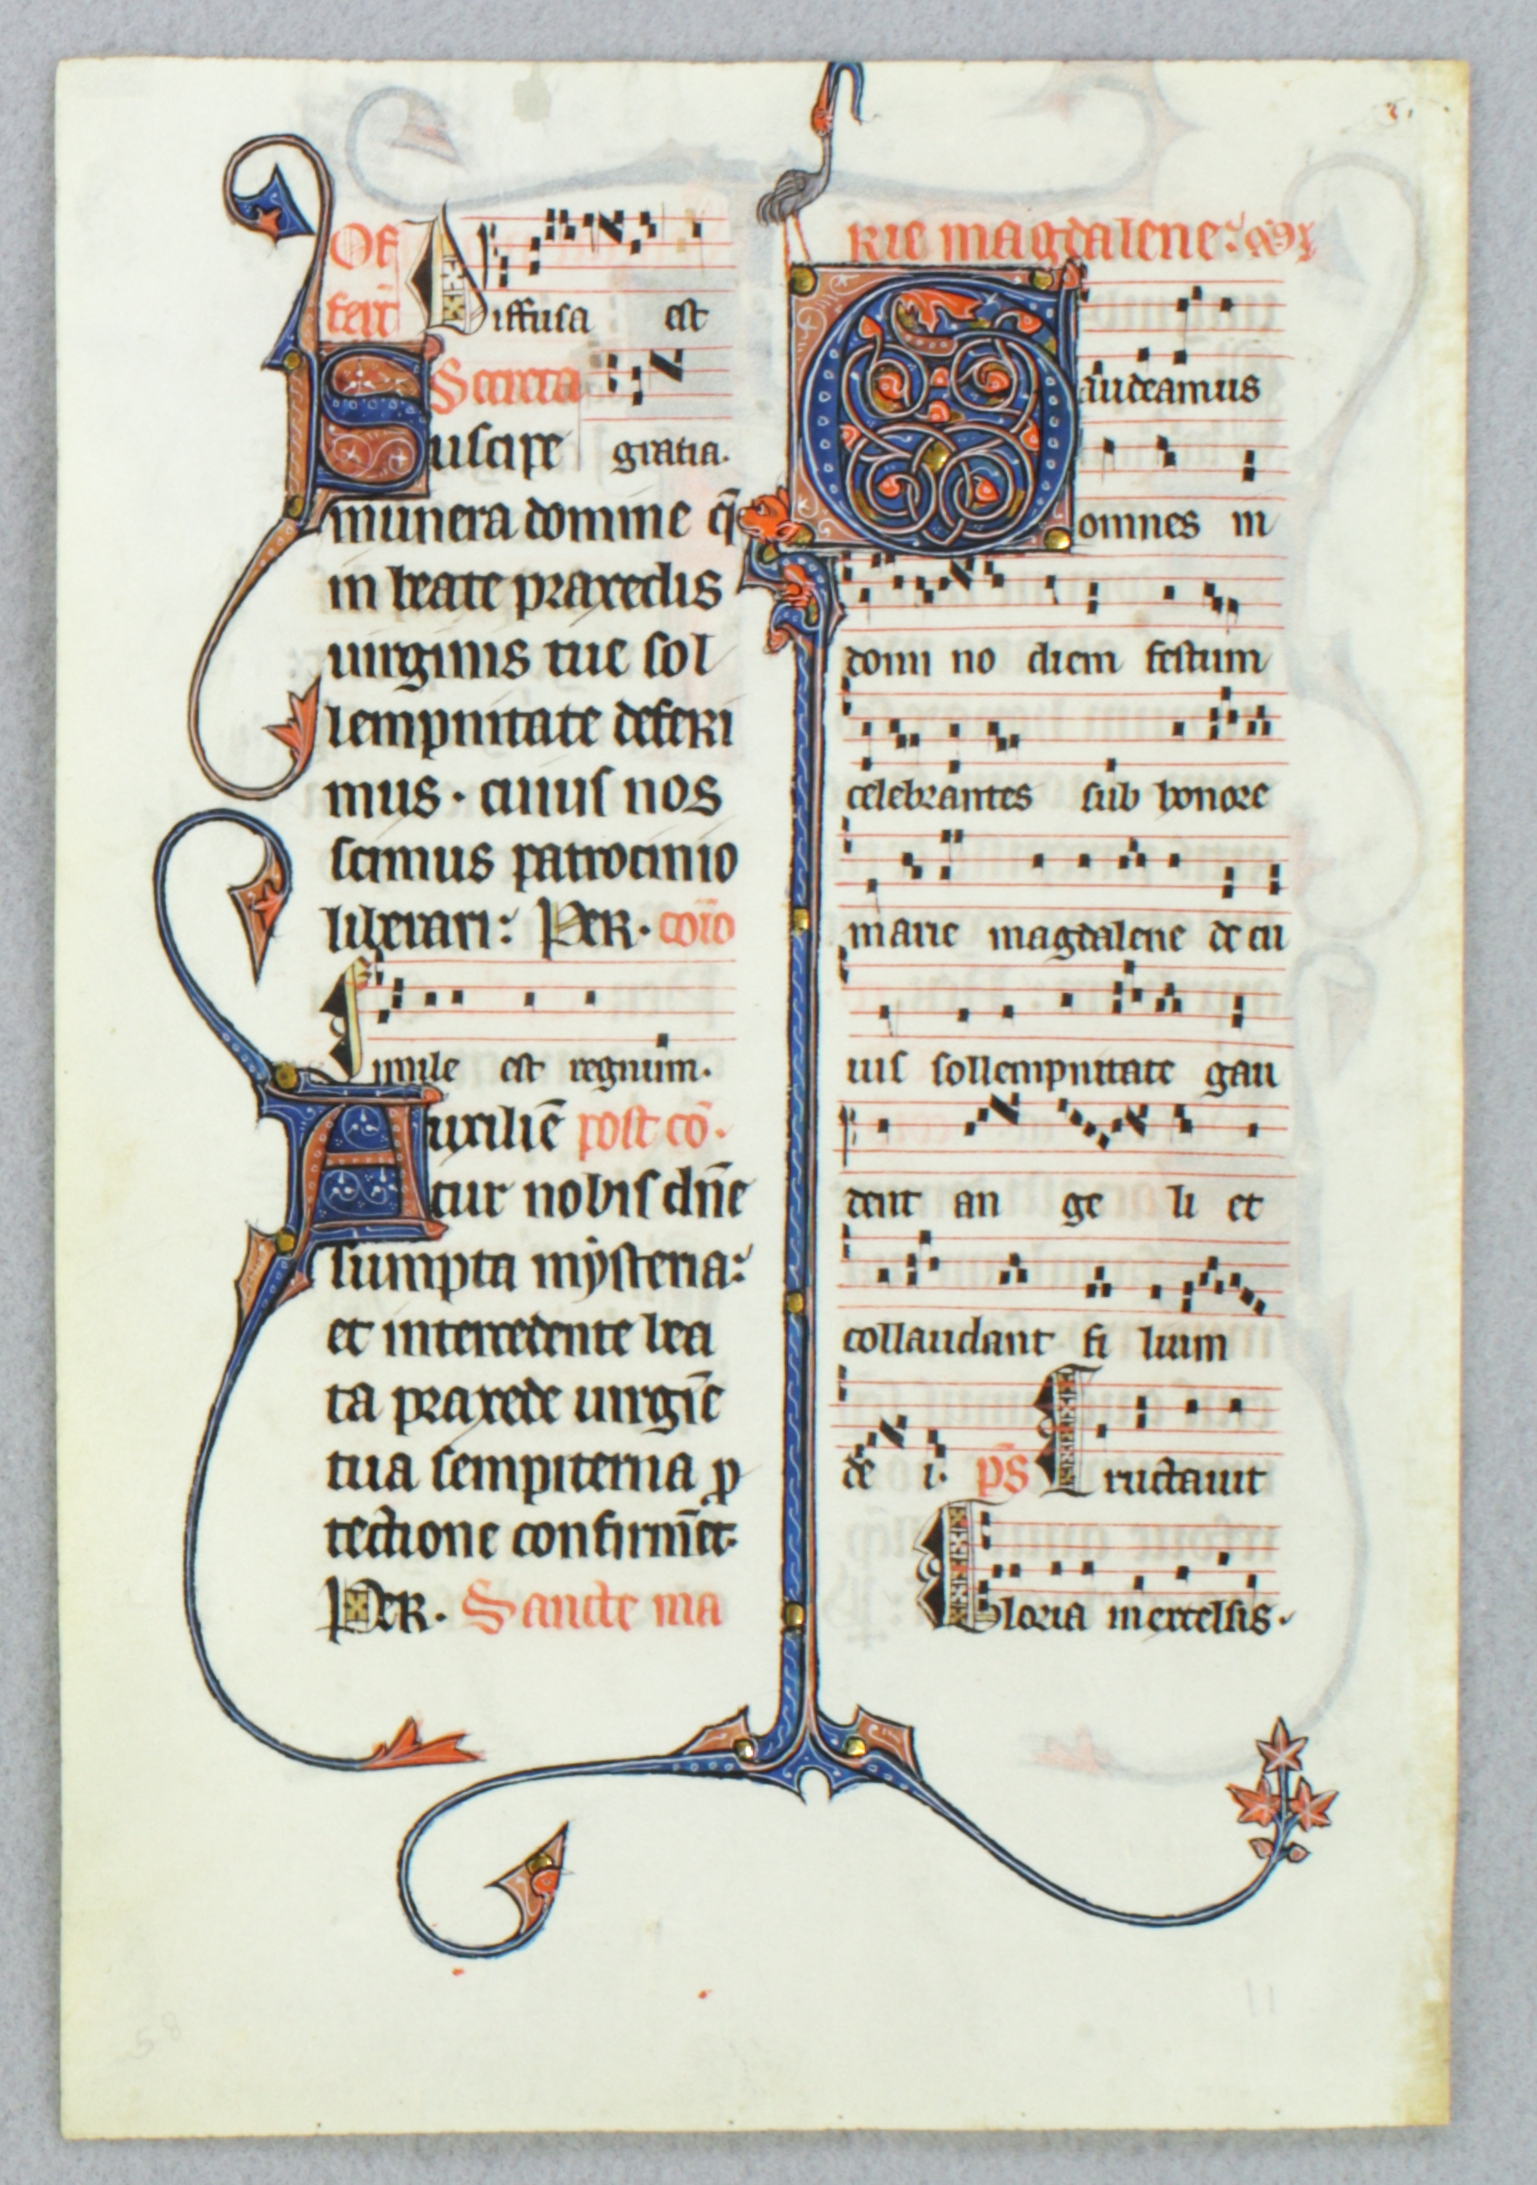 Of
fert̄ Diffusa est
Secreta
Suscipe gratia.
munera domine q̄
in beate praxedis
uirginis tue sol
lempnitate deferi
mus · cuius nos
scimus patrocinio
liberari: Per. cōio
Simile est regnum.
Auxiliē post cō.
tur nobis dn̄e
sumpta mẏsteria:
et intercedente bea
ta praxede uirgīe
tua sempiterna ꝓ
tectione confirmēt.
Per. Sancte ma
rie magdalene:
Gaudeamus
omnes in
domi no diem festum
celebrantes sub honore
marie magdalene de cu
ius sollempnitate gau
dent an ge li et
collaudant fi lium
de i. ps̄ Eructauit
Gloria inexcelsis.
58
11